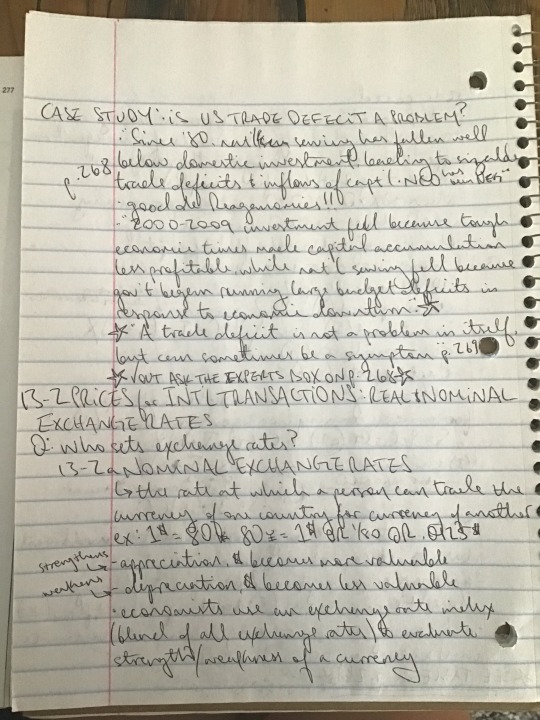 277
CASE STUDY: IS US TRADE DEFECIT A PROBLEM?
"Since '80. nat'l saving has fallen well
below domestic investment, leading to sizable
p. 268 trade deficits & inflows of cap't'l. NCO has been NEG"
: good ole Reaganomics!!!
- "2000-2009 investment fell because tough
economic times made capital accumulation
less profitable, while nat'l saving fell because
gov't began running large budget deficits in
response to economic downturn" ☆
☆ "A trade deficit is not a problem in itself,
but can sometimes be a symptom" p. 269
☆ √ OUT ASK THE EXPERTS BOX ON P. 268 ☆
13-2 PRICES for INT'L TRANSACTIONS: REAL & NOMINAL
EXCHANGE RATES
Q: Who sets exchange rates?
13-2a NOMINAL EXCHANGE RATES
↳ the rate at which a person can trade the
currency of one country for currency of another
ex: 1$ = 80¥ 80¥ = 1$ OR 1/80 OR .0125$
strengthens → - appreciation, $ becomes more valuable
weakens → - depreciation, $ becomes less valuable
· economists use an exchange rate index
(blend of all exchange rates) to evaluate
strength/weakness of a currency